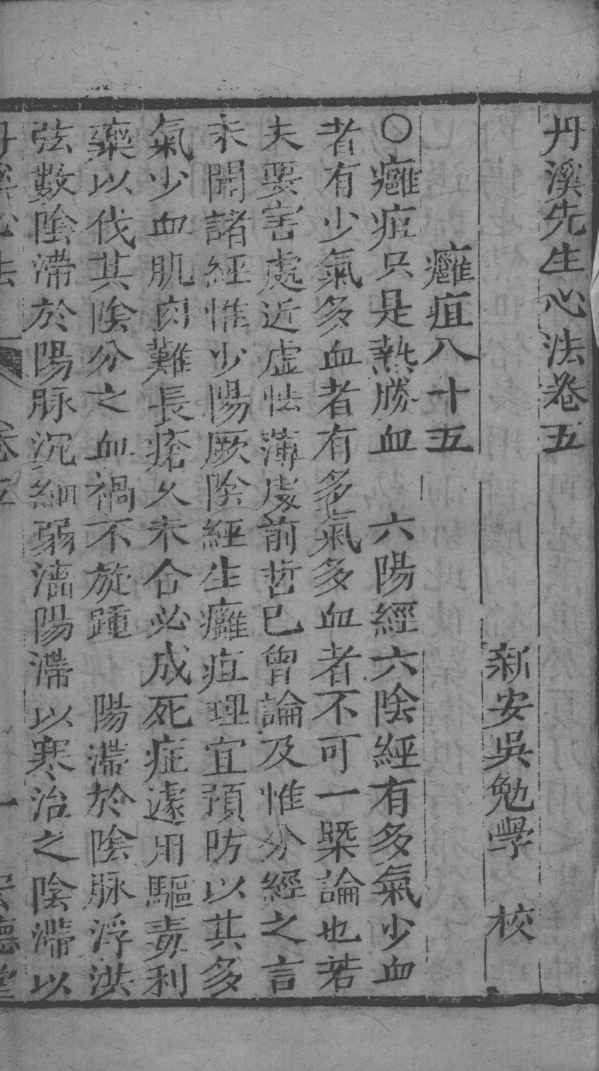 丹溪先生心法卷五
新安吳勉學 校
癰疽八十五
○癰疽只是熱勝血 六陽經六陰經有多氣少血
者有少氣多血者有多氣多血者不可一槩論也若
夫要害處近虛怯薄處前哲已曾論及惟分經之言
未聞諸經惟少陽厥陰經生癰疽理宜預防以其多
氣少血肌肉難長瘡久未合必成死症遽用驅毒利
藥以伐其陰分之血禍不旋踵 陽滯於陰脉浮洪
弦數陰滯於陽脉沉細弱濇陽滯以寒治之陰滯以
丹溪心法 卷五 一